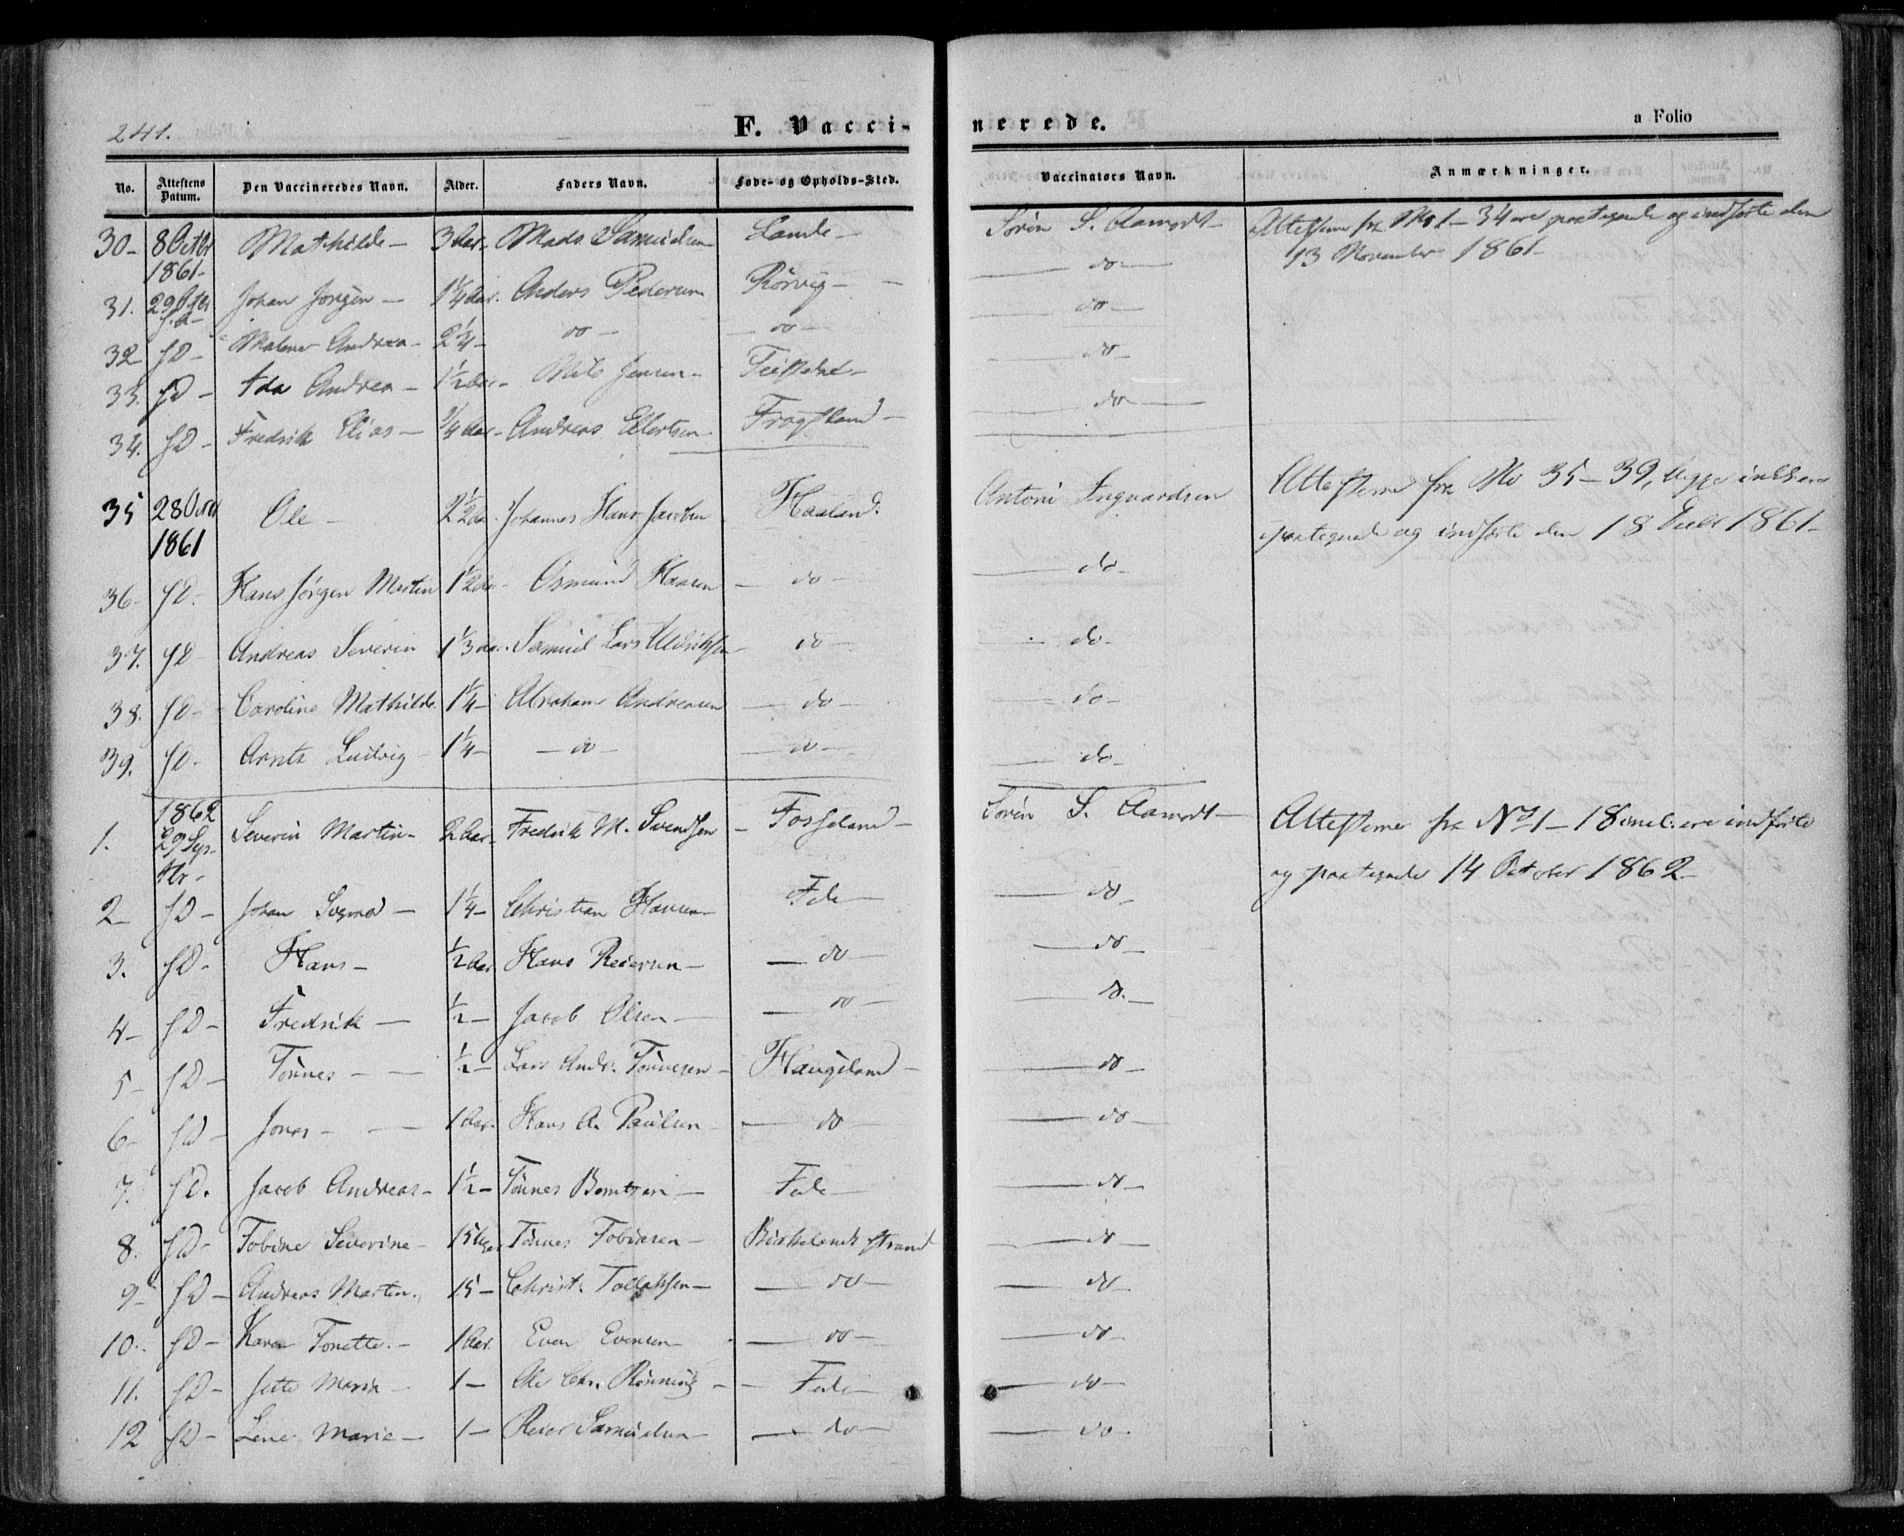 241. F. Vaccinerede. a Folio
No. Attestens Datum. Den Vaccineredes Navn. Alder. Faders Navn. Føde- og Opholds-Sted. Vaccinators Navn. Anmærkninger.
30- 8 Octbr 1861- Mathilde- 3 Aar- Mads Samuelsen Lande- Sören S. Aamodt- Attesterne fra No 1-34 ere paategnede og indførte den
13 November 1861-
31. Johan Jørgen- 1 1/4 Aar. Anders Pedersen Rørvig- do-
32 fD- Malene Andrea- 2 1/4- do- do- do-
33. fD- Ada Andrea- 1 1/2 Aar- Nils Jensen- do-
34. fD- Fredrik Elias- 3/4 Aar- Andreas Ellertsen Frogstand- do-
35 28 1861 Ole- 2 1/2 Johannes Hans Jacobsen Haaland. Antoni Inguardsen Attesterne fra No 35-39,
paategnede og indførte den 18 1861-
36- fD- Hans Jörgen Martin 1 1/2 Osmund Hansen do- do-
37. fD- Andreas Severin 1 1/3 Aar. Samuel Lars do- do-
38. fD- Caroline Mathilde 1 1/4- Abraham Andreasen do- do-
39. fD- Arnts Ludvig- 1 1/4- do- do- do-
1. 1862 29 Severin Martin- 2 Aar- Fredrik M. Svendsen- Fosseland- Sören S. Aamodt- Attesterne fra No 1-18 incl. ere indførte
og paategnede 14 October 1862-
2- fD- Johan 1 1/4- Christian Hansen- Fede- do-
3. fD- Hans- 1/2 Aar Hans Pedersen- do- do-
4- fD- Fredrik- 1/2- Jacob Olsen- do- do.-
5- fD- Tönnes- 1/2- Lars Andr. Tönnesen- Haugeland- do-
6- fD- Jonas- 1 Aar. Hans A. Paulsen- do- do-
7. fD. Jacob Andreas- 1 1/2- Tönnes Berntsen- Fede- do-
8. fD- Tobine Severine- 15 Uger Tönnes Tobiasen- Birkelands Strand do-
9- fD- Andreas Martin. 15- Christ. Tollaksen- do- do-
10. fD- Karen Tonette.- 1 Aar. Even Evensen- do- do-
11. fD- Jette Maria- 1- Ole Chr. Rönning- Fede- do-
12 fD- Lene Marie- 1- Reier Samuelsen- do- do.